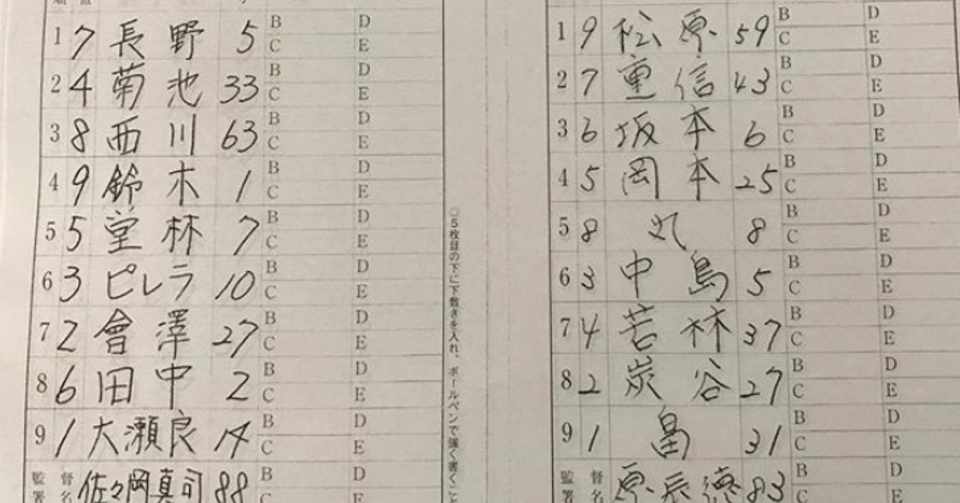 1 7 長野 5 B D
C E
2 4 菊池 33 B D
C E
3 8 西川 63 B D
C E
4 9 鈴木 1 B D
C E
5 5 堂林 7 B D
C E
6 3 ピレラ 10 B D
C E
7 2 會澤 27 B D
C E
8 6 田中 2 B D
C E
9 1 大瀬良 14 B D
C E
監督 佐々岡真司 88 B D
署名 C E
○5枚目の下に下敷きを入れ、ボールペンで強く書くこと
1 9 松原 59 B D
C E
2 7 重信 43 B D
C E
3 6 坂本 6 B D
C E
4 5 岡本 25 B D
C E
5 8 丸 8 B D
C E
6 3 中島 5 B D
C E
7 4 若林 37 B D
C E
8 2 炭谷 27 B D
C E
9 1 畠 31 B D
C E
監督 原辰徳 83 B D
署名 C E